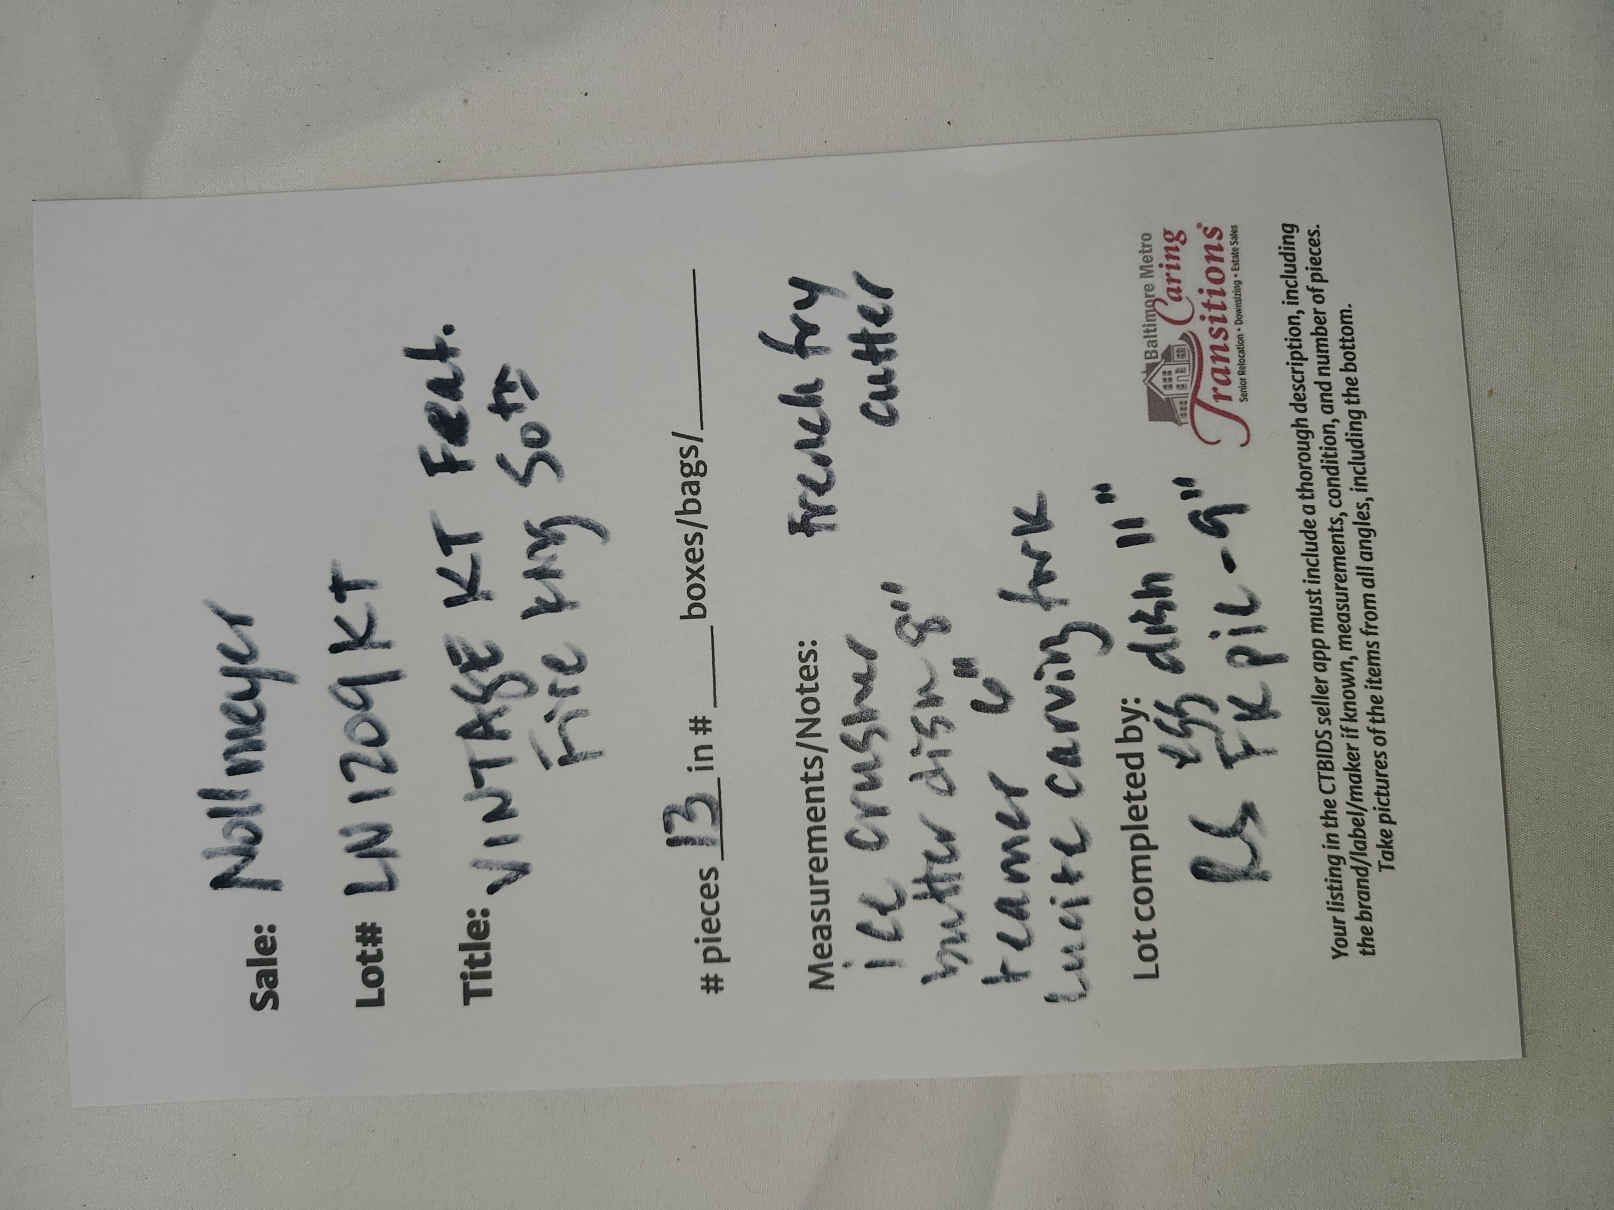 Sale: Nollmeyer
Lot# LN1209KT
Title: VINTAGE KT Feat.
Fire King 50th
# pieces 13 in # boxes/bags/
Measurements/Notes:
ice crusher
butter dish 8"
reamer 6"
Lucite carving fork
French fry
cutter
Lot completed by:
egg dish 11"
FK pie - 9"
Baltimore Metro
Caring
Transitions
Senior Relocation • Downsizing • Estate Sales
Your listing in the CTBIDS seller app must include a thorough description, including
the brand/label/maker if known, measurements, condition, and number of pieces.
Take pictures of the items from all angles, including the bottom.